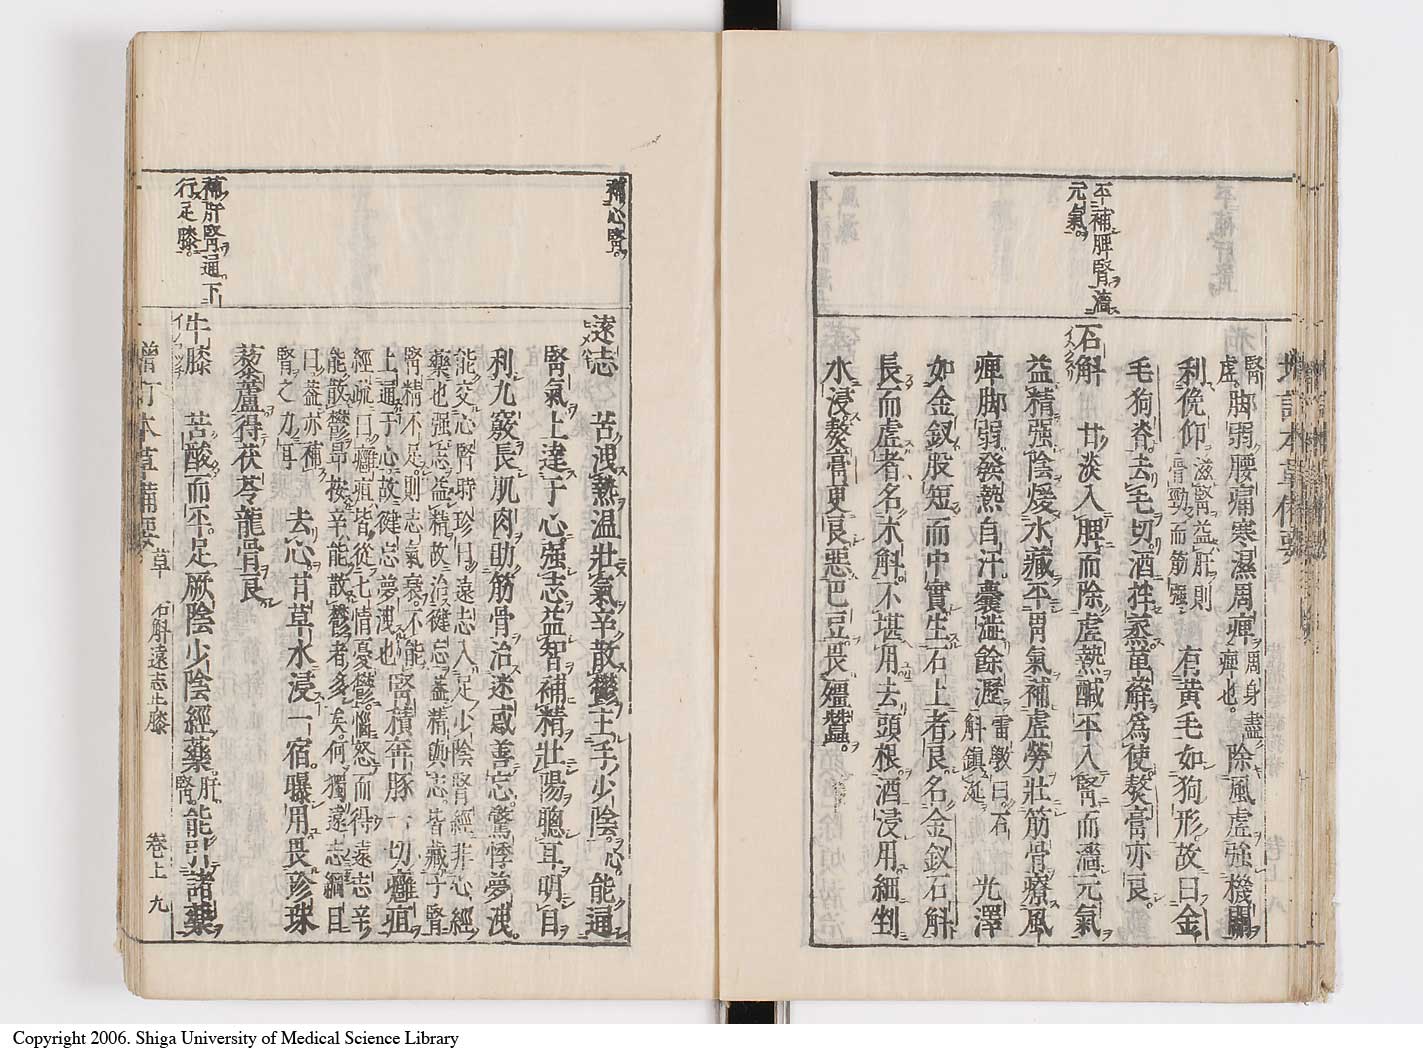 平補脾腎濇
元氣
腎虛脚弱腰痛寒濕周痺周身盡痺也除風虛強機關
利俛仰滋腎益肝則骨勁而筋強有黃毛如狗形故曰金
毛狗脊去毛切酒拌蒸萆薢爲使熬膏亦良
石斛 甘淡入脾而除虛熱鹹平入腎而濇元氣
益精强陰煖水藏平胃氣補虛勞壯筋骨療風
痺脚弱發熱自汗囊濇餘瀝雷斆曰石斛鎮涎光澤
如金釵股短而中實生石上者良名金釵石斛
長而虛者名水斛不堪用去頭根酒浸用細剉
水浸熬膏更良惡巴豆畏殭蠶
補心腎
遠志 苦洩熱温壯氣辛散鬱主手少陰心能通
腎氣上達于心强志益智補精壯陽聰耳明目
利九竅長肌肉助筋骨治迷惑善忘驚悸夢洩
能交心腎時珍曰遠志入足少陰腎經非心經
藥也强志益精故治健忘蓋精與志皆藏于腎
腎精不足則志氣衰不能
上通于心故健忘夢洩也腎積奔豚一切癰疽
經疏曰癰疽皆從七情憂鬱惱怒而得遠志辛
能散鬱昂按辛能散鬱者多矣何獨遠志綱目
曰蓋亦補
腎之力耳去心甘草水浸一宿曝用畏珍珠
藜蘆得茯苓龍骨良
補肝腎通下
行足膝
牛膝 苦酸而平足厥陰少陰經藥肝腎能引諸藥
增訂本草備要 草 石斛遠志牛膝 卷上 九
Copyright 2006. Shiga University of Medical Science Library